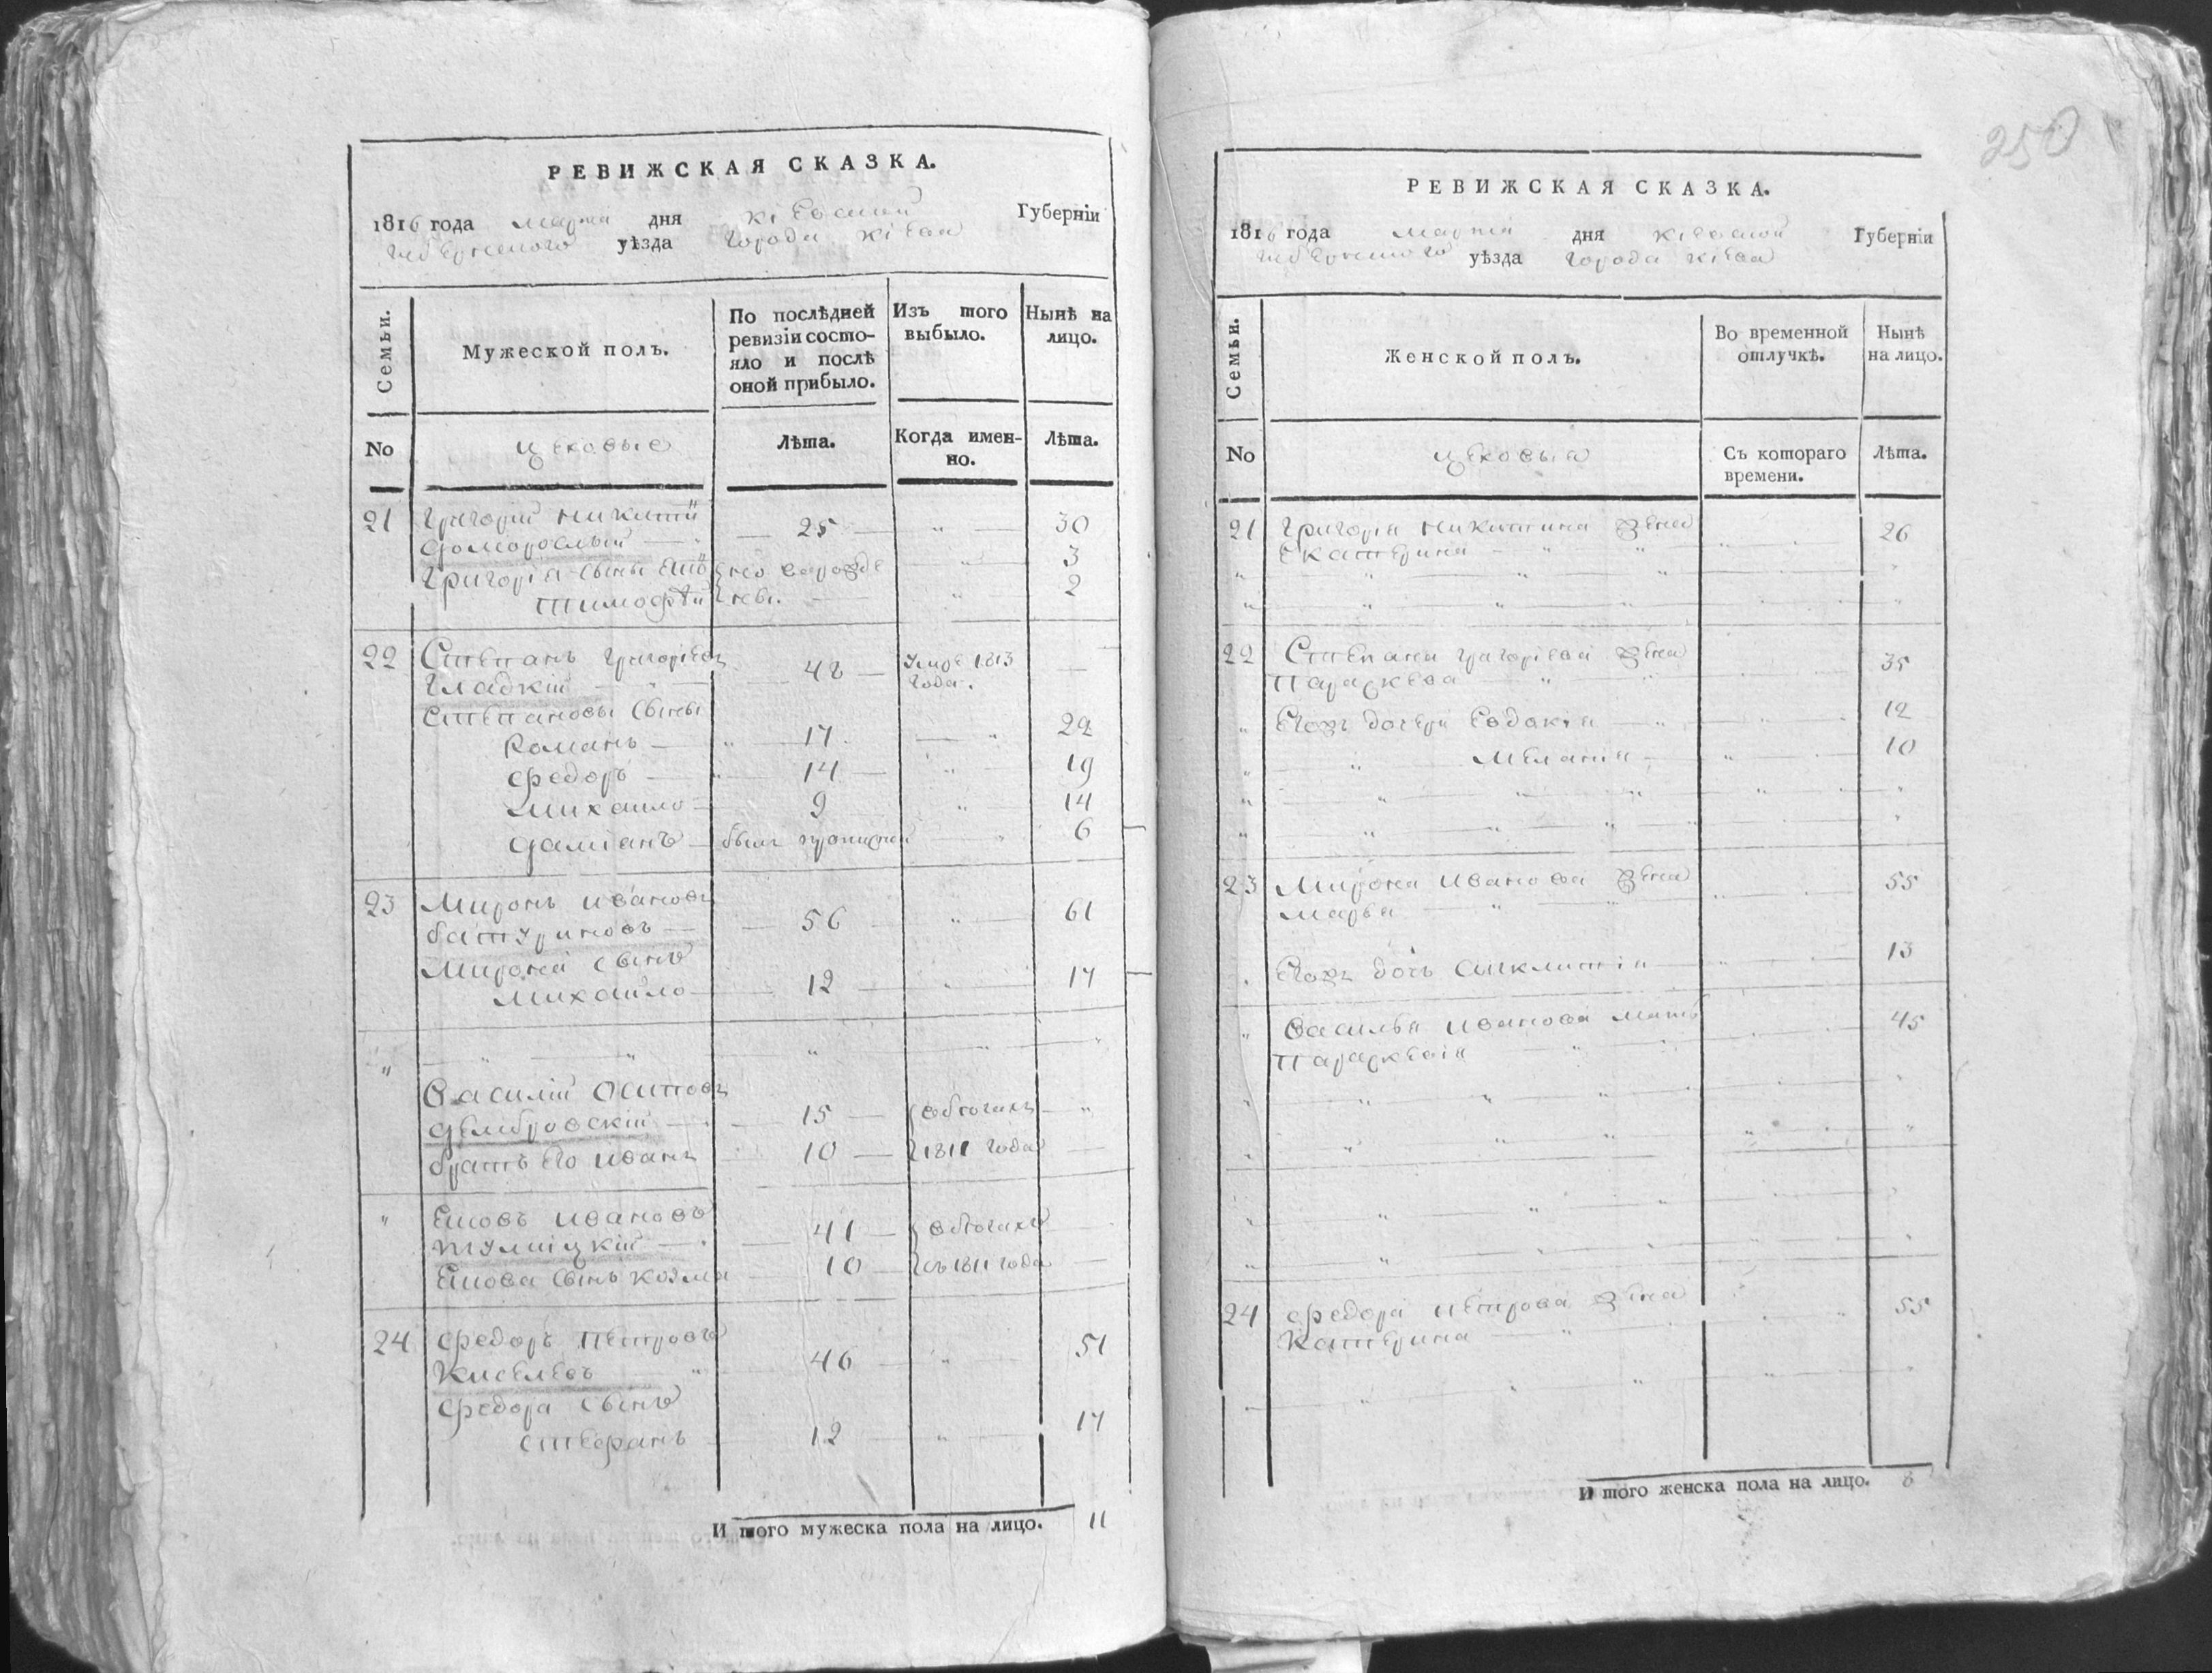 250
РЕВИЖСКАЯ СКАЗКА.
1816 года марта дня кіевской Губерніи
уѣзда города кіева
Семьи.
Мужеской полъ.
По послѣдней ревизіи состо-
яло и послѣ
оной прибыло.
Изъ того
выбыло.
Нынѣ на
лицо.
No
цеховые
Лѣта.
Когда имен-
но.
Лѣта.
21 Григорій никити
25 " 30
Григорія сыны 3
тимофѣй " 2
22 Степанъ григоріевъ
гладкій 48 умре 1813 года.
степановы сыны
Романъ " 17 " 22
федоръ " 14 " 19
михаило 9 " 14
даміанъ былъ прописной " 6
23 Миронъ ивановъ
батуриновъ 56 " 61
мирона сынъ
михаило 12 " 17
" " " " " "
Василій осиповъ
15 "
братъ его иванъ 10 1811 года
" ивановъ
41
сынъ козма 10 съ 1811 года
24 федоръ петровъ
киселевъ " 46 " 51
федора сынъ
стефанъ 12 " 17
И того мужеска пола на лицо. 11
РЕВИЖСКАЯ СКАЗКА.
1816 года марта дня кіевской Губерніи
уѣзда города кіева
Семьи.
Женской полъ.
Во временной
отлучкѣ.
Нынѣ
на лицо.
No
цеховыя
Съ котораго
времени.
Лѣта.
21 Григорія никитина жена
екатерина " " 26
22 Степана григоріева жена
параскева " 35
" Егожъ дочери Евдокія " 12
" " меланія " 10
23 Мирона иванова жена
марья " " 55
Егожъ дочь синклитія " 13
" Василья иванова мать
параскевія " 45
24 федора петрова жена
катерина " 55
И того женска пола на лицо. 8